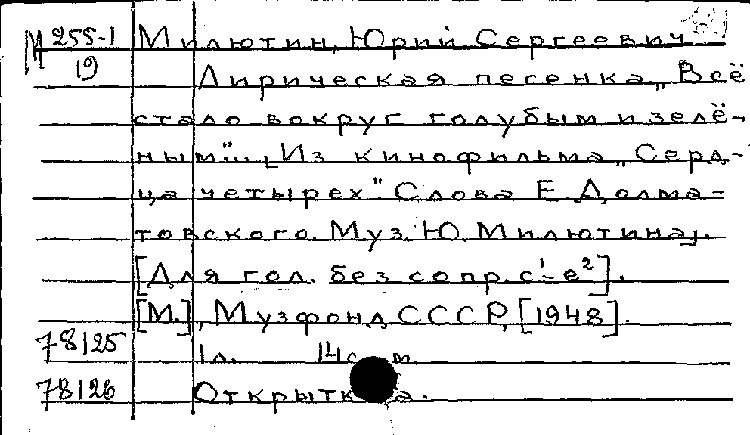 М 255-1 Милютин, Юрий Сергеевич
19 Лирическая песенка „Всё
стало вокруг голубым и зелё-
ным"... [Из кинофильма „Серд-
ца четырех". Слова Е. Долма-
товского. Муз. Ю. Милютина].
[Для гол. без сопр. c¹-e²].
[М.], Музфонд СССР, [1948].
78125 1 л. 14 см.
78126 Открытка.